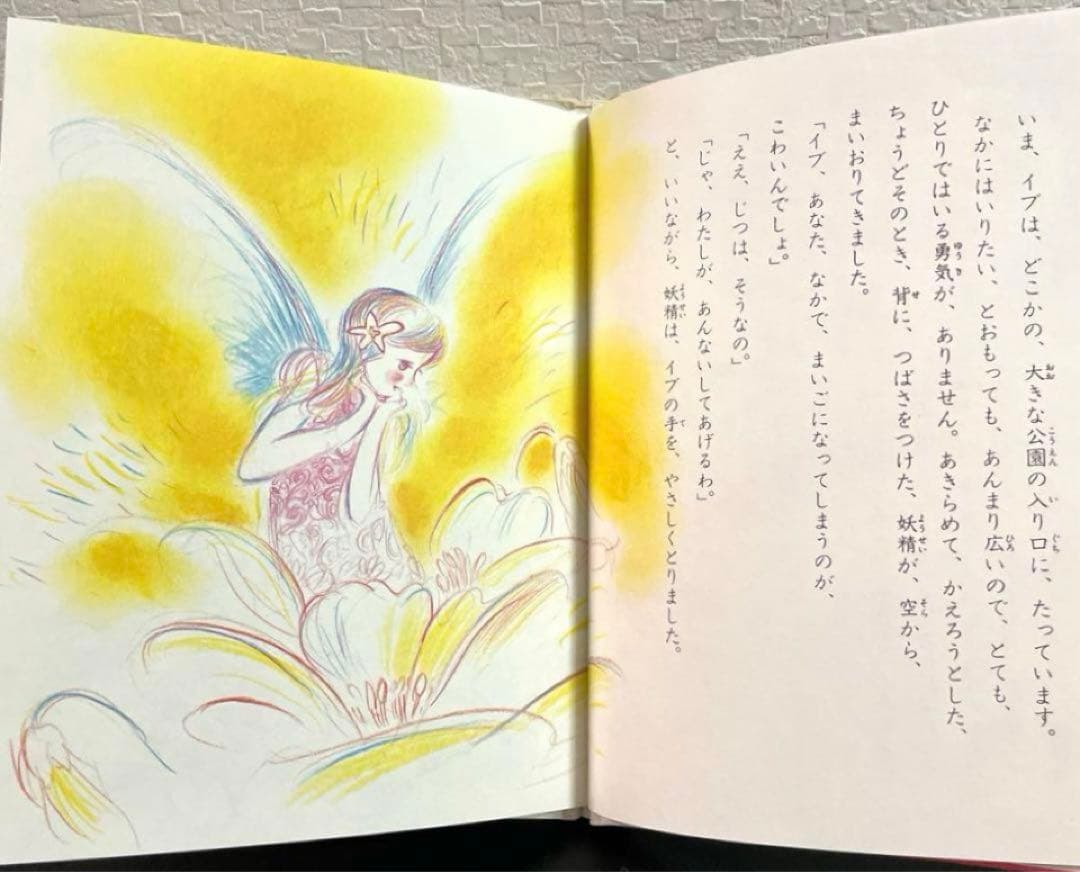 いま、イブは、どこかの、大きな公園の入り口に、たっています。
なかにはいりたい、とおもっても、あんまり広いので、とても、
ひとりではいる勇気が、ありません。あきらめて、かえろうとした、
ちょうどそのとき、背に、つばさをつけた、妖精が、空から、
まいおりてきました。
「イブ、あなた、なかで、まいごになってしまうのが、
こわいんでしょ。」
「ええ、じつは、そうなの」。
「じゃ、わたしが、あんないしてあげるわ」。
と、いいながら、妖精は、イブの手を、やさしくとりました。